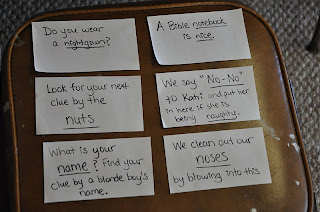 Do you wear
a nightgown?
A Bible notebook
is nice.
Look for your next
clue by the
nuts
We say "No-No"
to Katri and put her
in here if she is
being naughty.
What is your
name? Find your
clue by a blonde boy's
name.
We clean out our
noses
by blowing into this